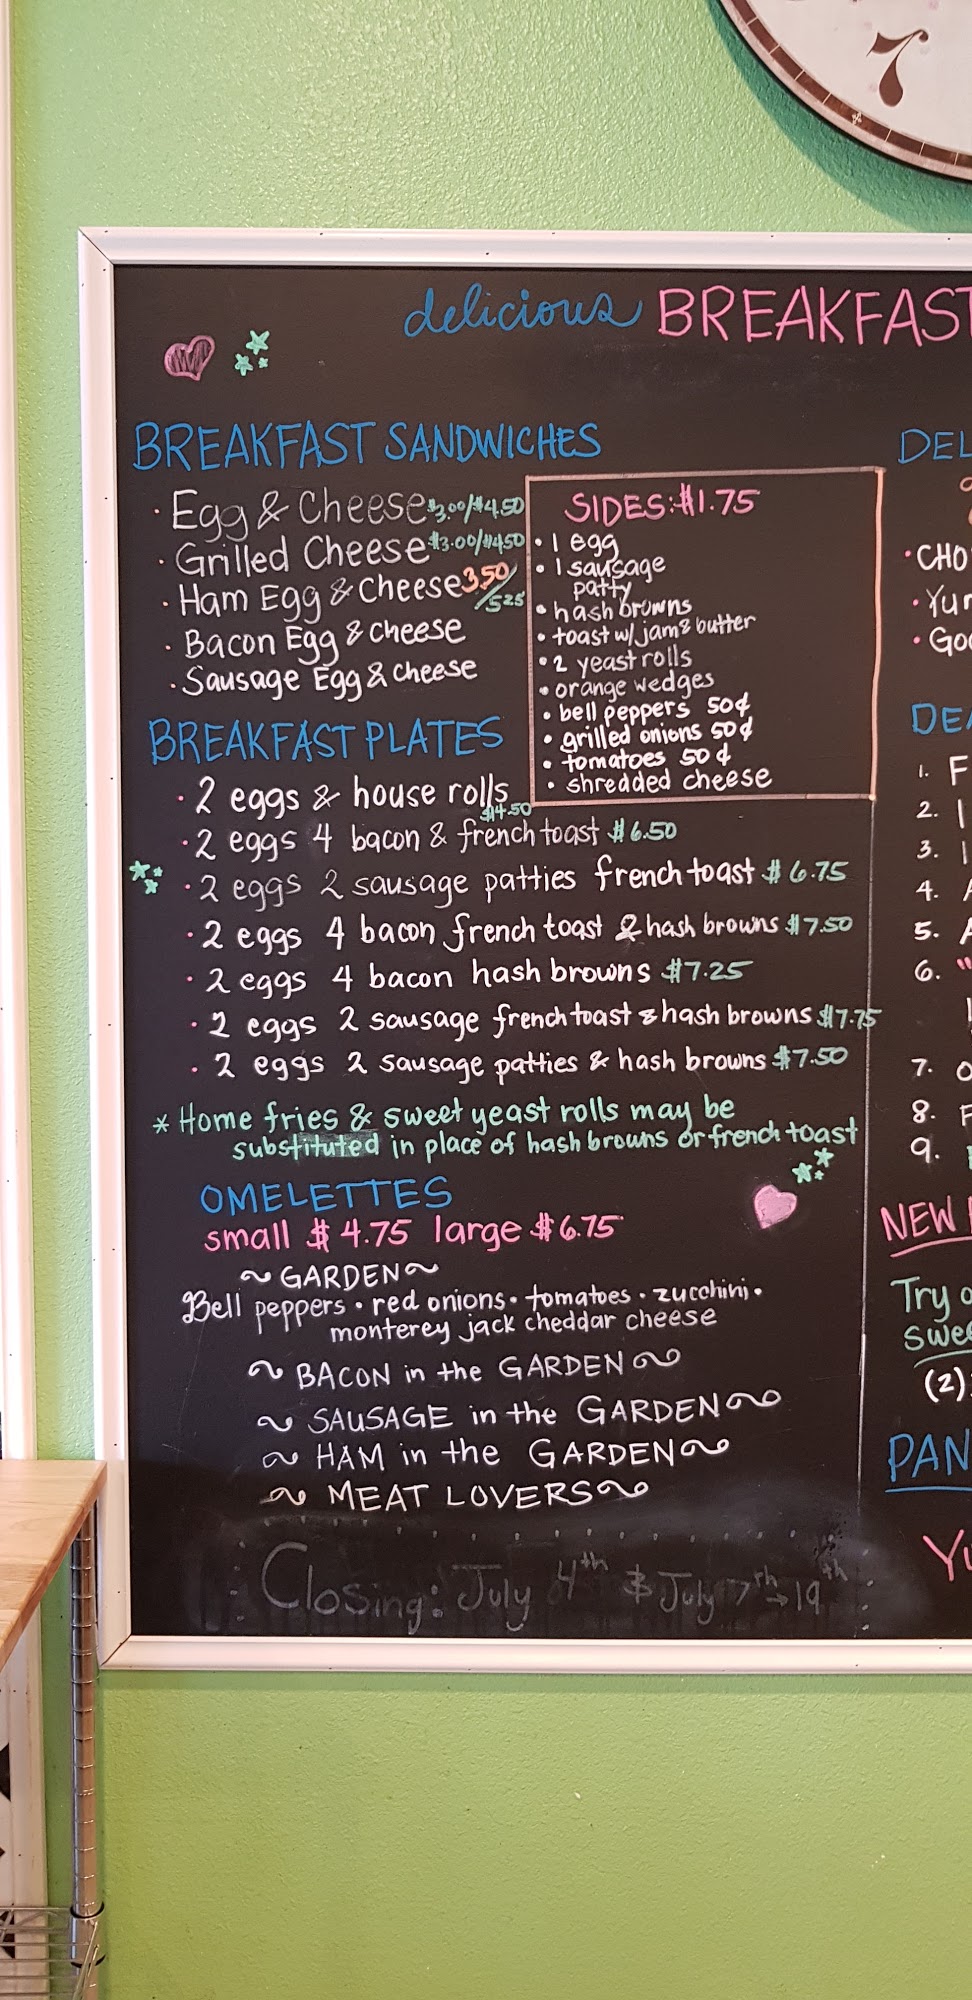 7
delicious BREAKFAST
BREAKFAST SANDWICHES
· Egg & Cheese $3.00/$4.50
· Grilled Cheese $3.00/$4.50
· Ham Egg & Cheese 3.50/5.25
· Bacon Egg & Cheese
· Sausage Egg & Cheese
SIDES: $1.75
• 1 egg
• 1 sausage
patty
• hash browns
• toast w/ jam & butter
• 2 yeast rolls
• orange wedges
• bell peppers 50¢
• grilled onions 50¢
• tomatoes 50¢
• shredded cheese
BREAKFAST PLATES
· 2 eggs & house rolls
$4.50
· 2 eggs 4 bacon & french toast $6.50
· 2 eggs 2 sausage patties french toast $6.75
· 2 eggs 4 bacon french toast & hash browns $7.50
· 2 eggs 4 bacon hash browns $7.25
· 2 eggs 2 sausage french toast & hash browns $7.75
· 2 eggs 2 sausage patties & hash browns $7.50
* Home fries & sweet yeast rolls may be
substituted in place of hash browns or french toast
OMELETTES
small $4.75 large $6.75
~ GARDEN ~
Bell peppers • red onions • tomatoes • zucchini •
monterey jack cheddar cheese
~ BACON in the GARDEN ~
~ SAUSAGE in the GARDEN ~
~ HAM in the GARDEN ~
~ MEAT LOVERS ~
Closing: July 4th & July 7th→19th
DEL
· CHO
· Yu
· Goo
DEA
1. F
2. 1
3. 1
4. A
5. A
6. "
7. O
8. F
9.
NEW
Try o
swe
(2)
PAN
Yu